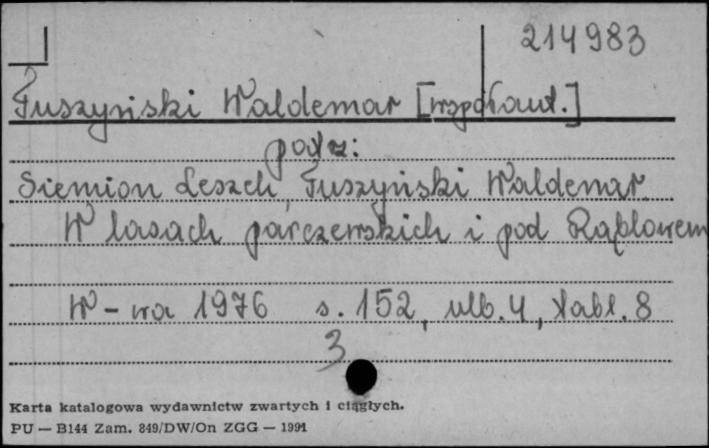 214983
Tuszyński Waldemar [współaut.]
patrz:
Siemion Leszek, Tuszyński Waldemar.
W lasach parczewskich i pod Rąblowem
W-wa 1976 s. 152, nlb. 4, tabl. 8
3
Karta katalogowa wydawnictw zwartych i ciągłych.
PU — B144 Zam. 849/DW/On ZGG — 1991